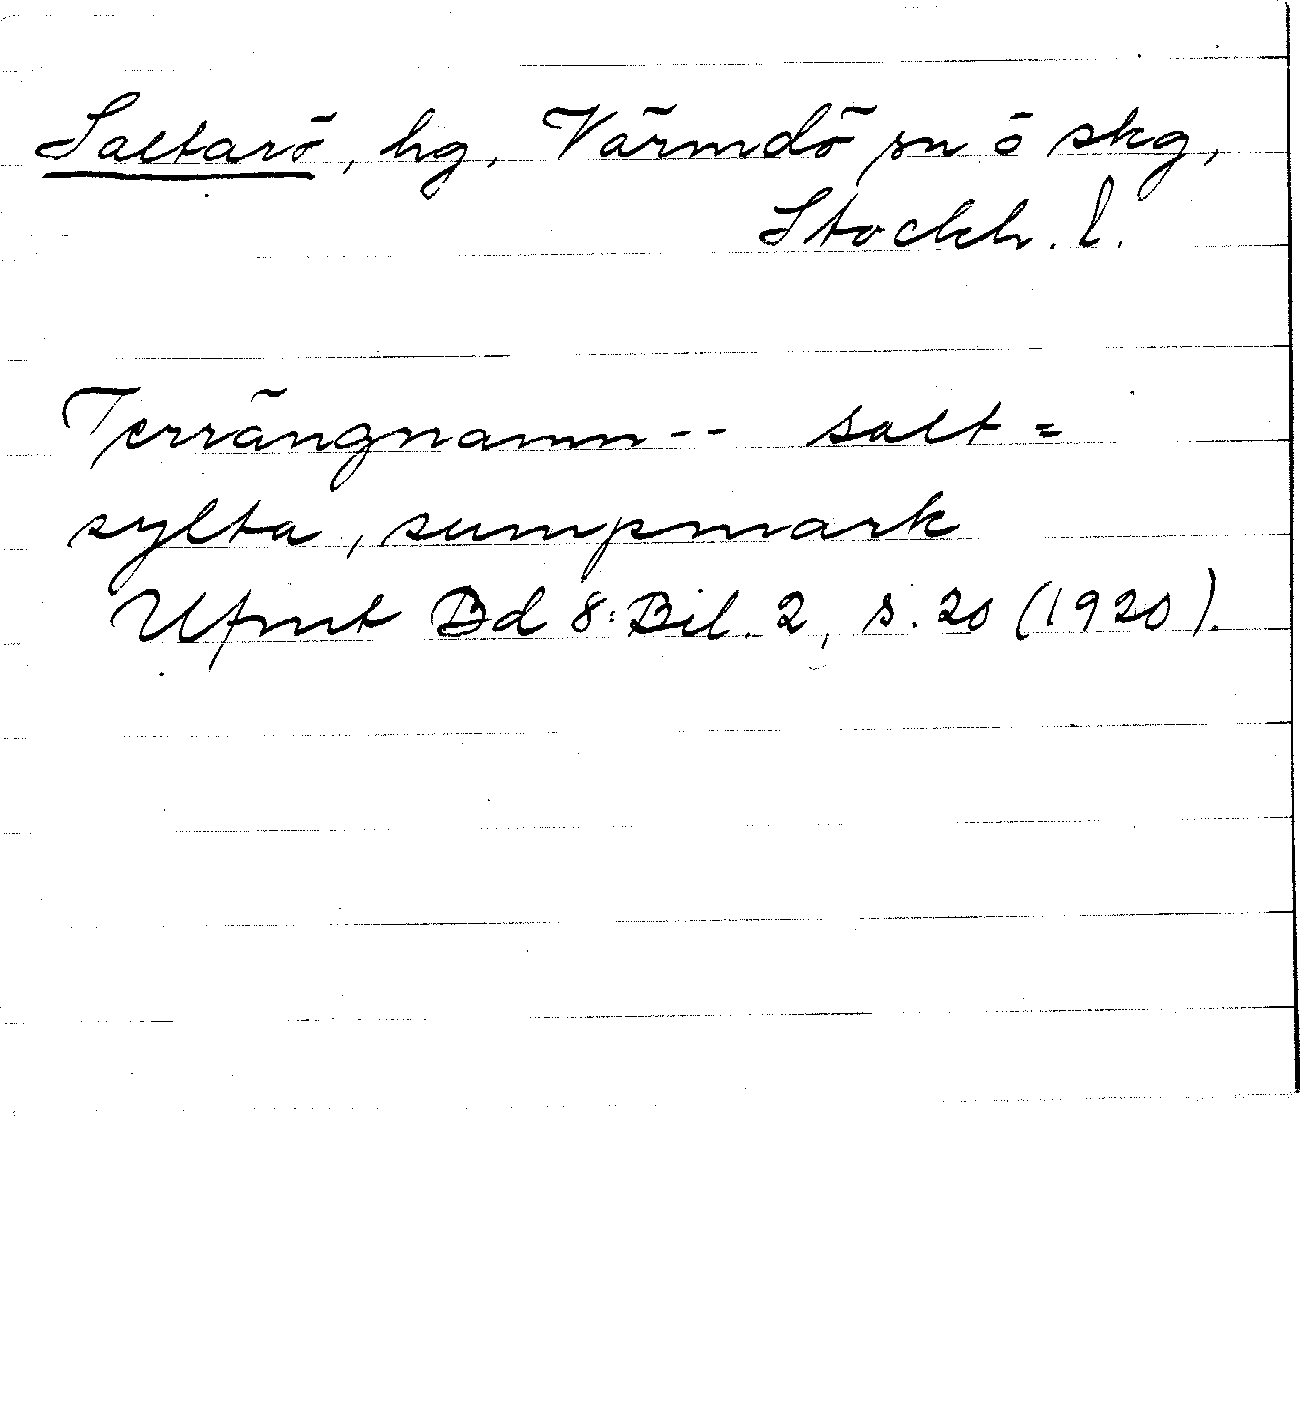 Saltarö, hg, Värmdö sn o skg,
Stockh. l.
Terrängnamn -- salt =
sylta, sumpmark
Ufmt Bd 8: Bil. 2, s. 20 (1920).